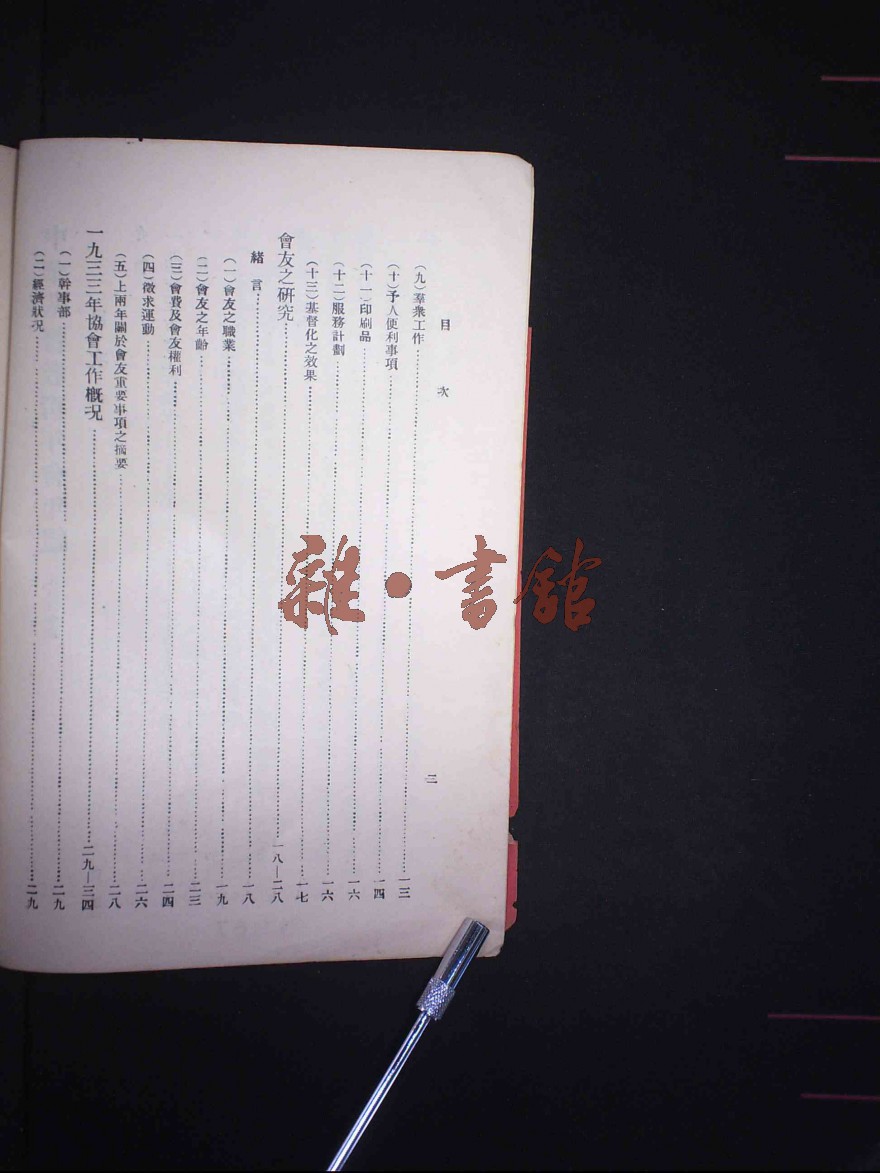 目次
二
（九）羣衆工作……一三
（十）予人便利事項……一四
（十一）印刷品……一六
（十二）服務計劃……一六
（十三）基督化之效果……一七
會友之研究……一八—二八
緒言……一八
（一）會友之職業……一九
（二）會友之年齡……二三
（三）會費及會友權利……二四
（四）徵求運動……二六
（五）上兩年關於會友重要事項之摘要……二八
一九三三年協會工作概况……二九—三四
（一）幹事部……二九
（二）經濟狀况……二九
雜·書館